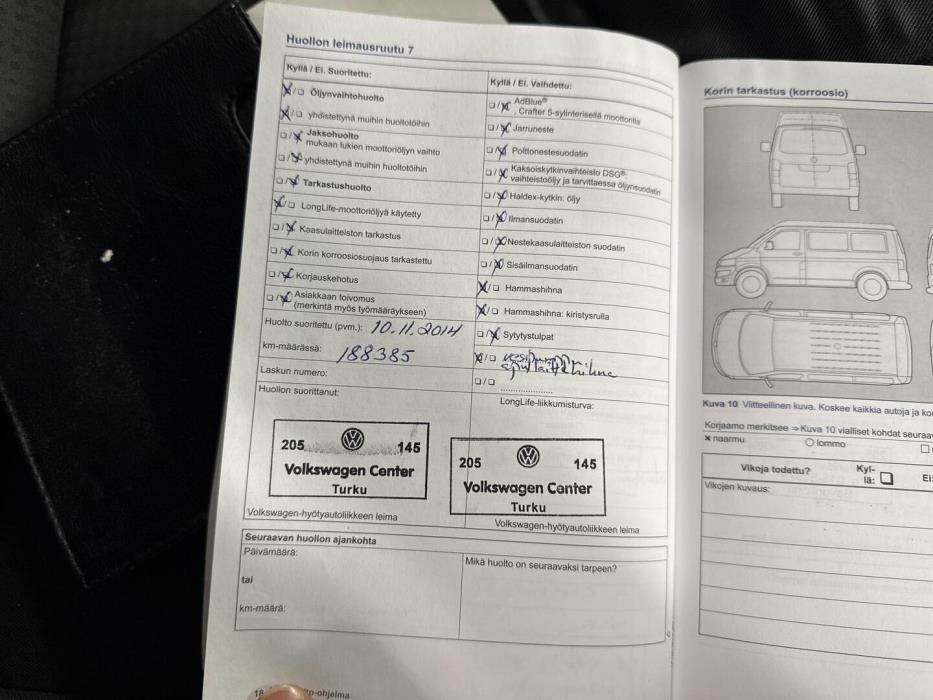 Huollon leimausruutu 7
Kyllä / Ei. Suoritettu:
Öljynvaihtohuolto
yhdistettynä muihin huoltotöihin
Jaksohuolto
mukaan lukien moottoriöljyn vaihto
yhdistettynä muihin huoltotöihin
Tarkastushuolto
LongLife-moottoriöljyä käytetty
Kaasulaitteiston tarkastus
Korin korroosiosuojaus tarkastettu
Korjauskehotus
Asiakkaan toivomus
(merkintä myös työmääräykseen)
Huolto suoritettu (pvm.): 10.11.2014
km-määrässä: 188385
Laskun numero:
Huollon suorittanut:
205 145
Volkswagen Center
Turku
Volkswagen-hyötyautoliikkeen leima
Kyllä / Ei. Vaihdettu:
AdBlue®
, Crafter 5-sylinterisellä moottorilla
Jarruneste
Polttonestesuodatin
Kaksoiskytkinvaihteisto DSG®:
vaihteistoöljy ja tarvittaessa öljynsuodatin
Haldex-kytkin: öljy
Ilmansuodatin
Nestekaasulaitteiston suodatin
Sisäilmansuodatin
Hammashihna
Hammashihna: kiristysrulla
Sytytystulpat
vesipumppu
apulaitehihna
LongLife-liikkumisturva:
205 145
Volkswagen Center
Turku
Volkswagen-hyötyautoliikkeen leima
Seuraavan huollon ajankohta
Päivämäärä:
tai
km-määrä:
Mikä huolto on seuraavaksi tarpeen?
18
to-ohjelma
Korin tarkastus (korroosio)
Kuva 10 Viitteellinen kuva. Koskee kaikkia autoja ja
Korjaamo merkitsee ⇒ Kuva 10 vialliset kohdat
x naarmu ○ lommo
Vikoja todettu? Kyl-
lä: Ei:
Vikojen kuvaus: